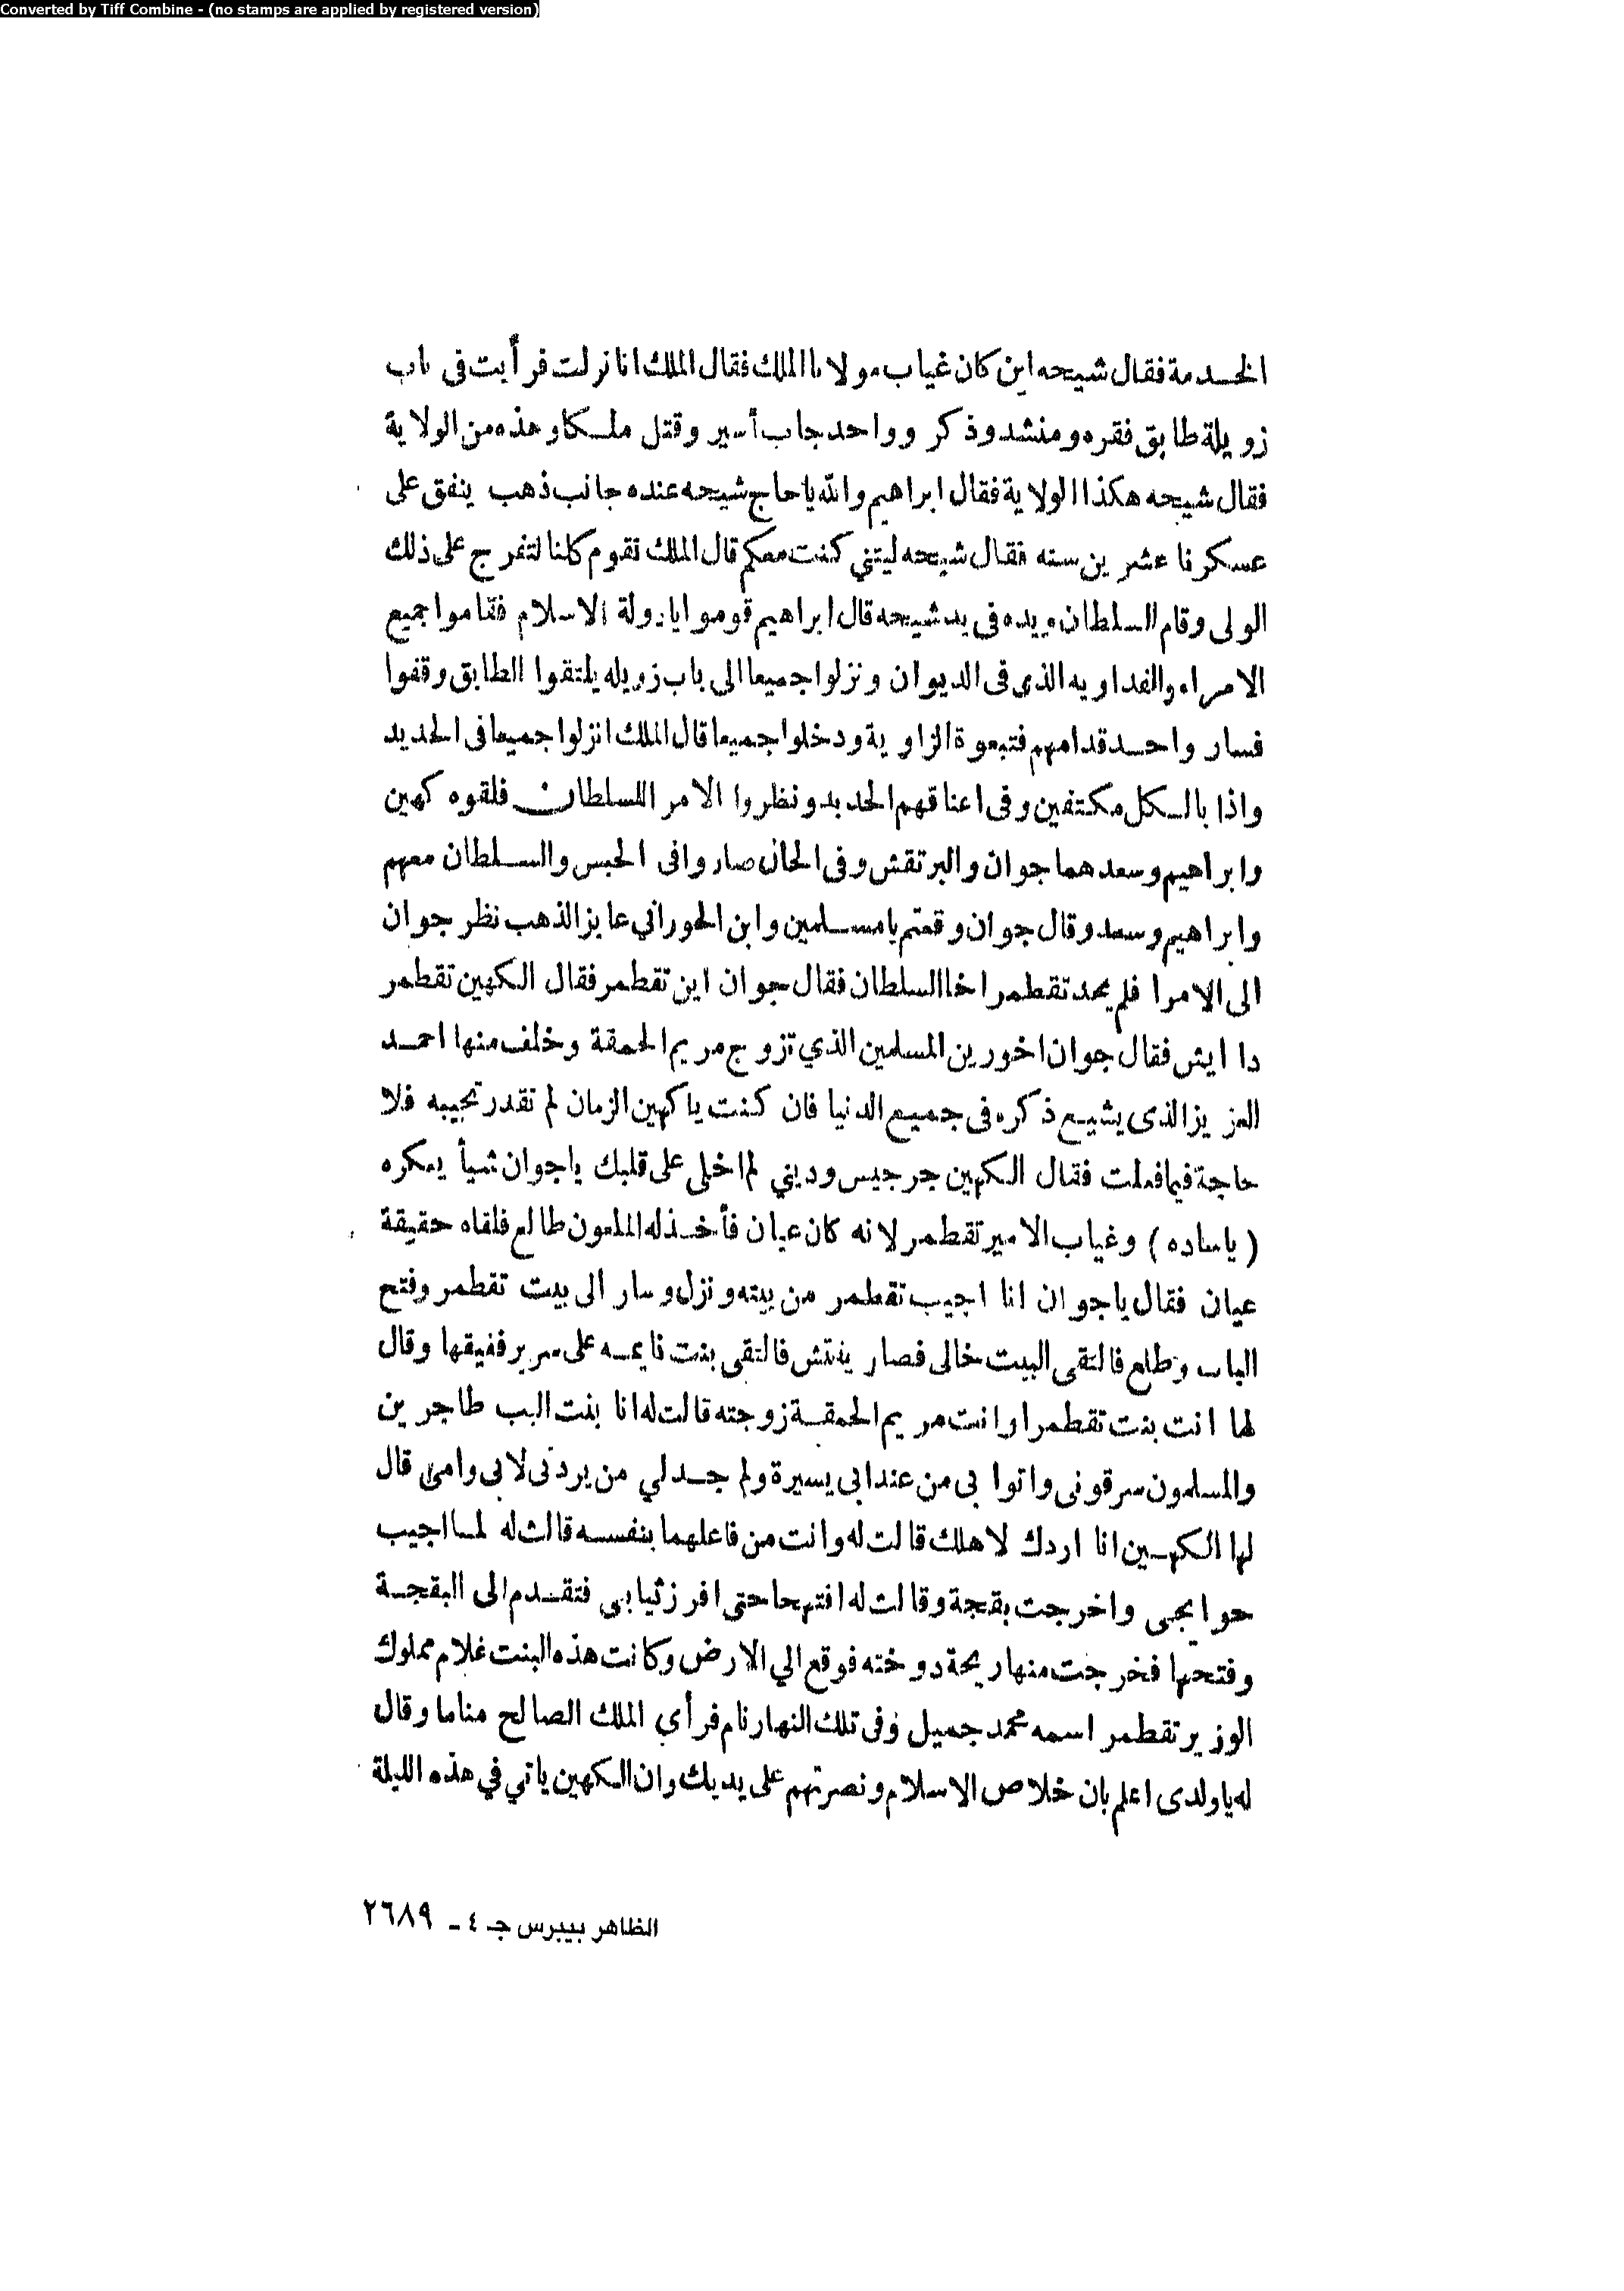 Converted by Tiff Combine - (no stamps are applied by registered version)
الخدمة فقال شيحه اين كان غياب مولانا الملك فقال الملك انا نزلت فرأيت فى باب
زويلة طابق فقره ومنشد وذكر وواحد جاب أسير وقتل ملكا وهذه من الولاية
فقال شيحه هكذا الولاية فقال ابراهيم والله ياحاج شيحه عنده جانب ذهب ينفق على
عسكرنا عشرين سنه فقال شيحه ليتني كنت معكم قال الملك نقوم كلنا لنفرج على ذلك
الولى وقام السلطان ويده فى يد شيحه قال ابراهيم قوموا يادولة الاسلام فقاموا جميع
الامراء والفداويه الذى فى الديوان ونزلوا جميعا الى باب زويله يلتقوا الطابق وقفوا
فسار واحد قدامهم فتبعوة الزاوية ودخلوا جميعا قال الملك انزلوا جميعا فى الحديد
واذا بالكل مكتفين وفى اعناقهم الحديد ونظروا الامر اللسلطان فلقوه كهين
وابراهيم وسعد هما جوان والبرتقش وفى الحال صاروا فى الحبس والسلطان معهم
وابراهيم وسعد وقال جوان وقعتم يامسلمين وابن الحوراني عايز الذهب نظر جوان
الى الامرا فلم يجد تقطمر اخا السلطان فقال جوان اين تقطمر فقال الكهين تقطمر
دا ايش فقال جوان اخورين المسلمين الذي تزوج مريم الحمقة وخلف منها احمد
العزيز الذى يشيع ذكره فى جميع الدنيا فان كنت ياكهين الزمان لم تقدر تجيبه فلا
حاجة فيما فعلت فقال الكهين جرجيس وديني لم اخلى على قلبك ياجوان شيأ يعكره
(ياساده) وغياب الامير تقطمر لانه كان عيان فأخذ له الملعون طالع فلقاه حقيقة
عيان فقال ياجوان انا اجيب تقطمر من بيته ونزل وسار الى بيت تقطمر وفتح
الباب وطلع فالتقى البيت خالى فصار يفتش فالتقى بنت نايمه على سرير ففيقها وقال
لها انت بنت تقطمر او انت مريم الحمقة زوجته قالت له انا بنت البب طاجرين
والمسلمون سرقونى واتوا بى من عند ابى يسيرة ولم جد لي من يردنى لابى وامى قال
لها الكهين انا اردك لاهلك قالت له وانت من فاعلهما بنفسه قالت له لما اجيب
حوايجى واخرجت بقجة وقالت له افتحها حتى افرز ثيابى فتقدم الى البقجة
وفتحها فخرجت منها ريحة دوخته فوقع الي الارض وكانت هذه البنت غلام مملوك
الوزير تقطمر اسمه محمد جميل وفى تلك النهار نام فرأي الملك الصالح مناما وقال
له ياولدى اعلم بان خلاص الاسلام ونصرتهم على يديك وان الكهين ياتي في هذه الليلة
الظاهر بيبرس جـ ٤ ـ ٢٦٨٩